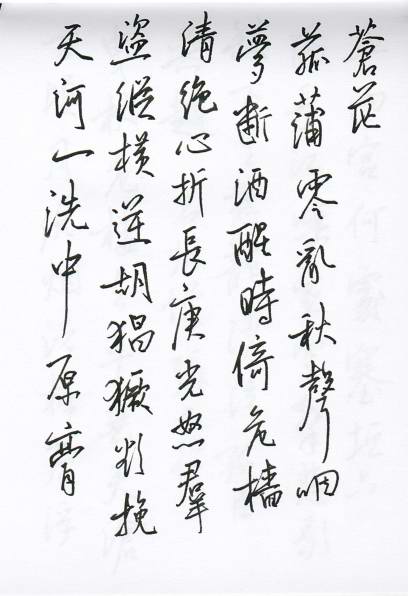 蒼茫
菰蒲零亂秋聲咽
夢斷酒醒時倚危檣
清絶心折長庚光怒羣
盜縱橫逆胡猖獗欲挽
天河一洗中原膏